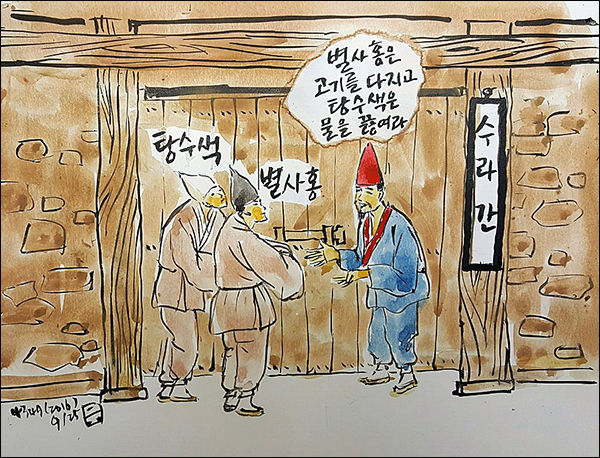 별사홍은
고기를 다지고
탕수색은
물을 끓여라
탕수색
별사홍
수라간
(2016)
9/25